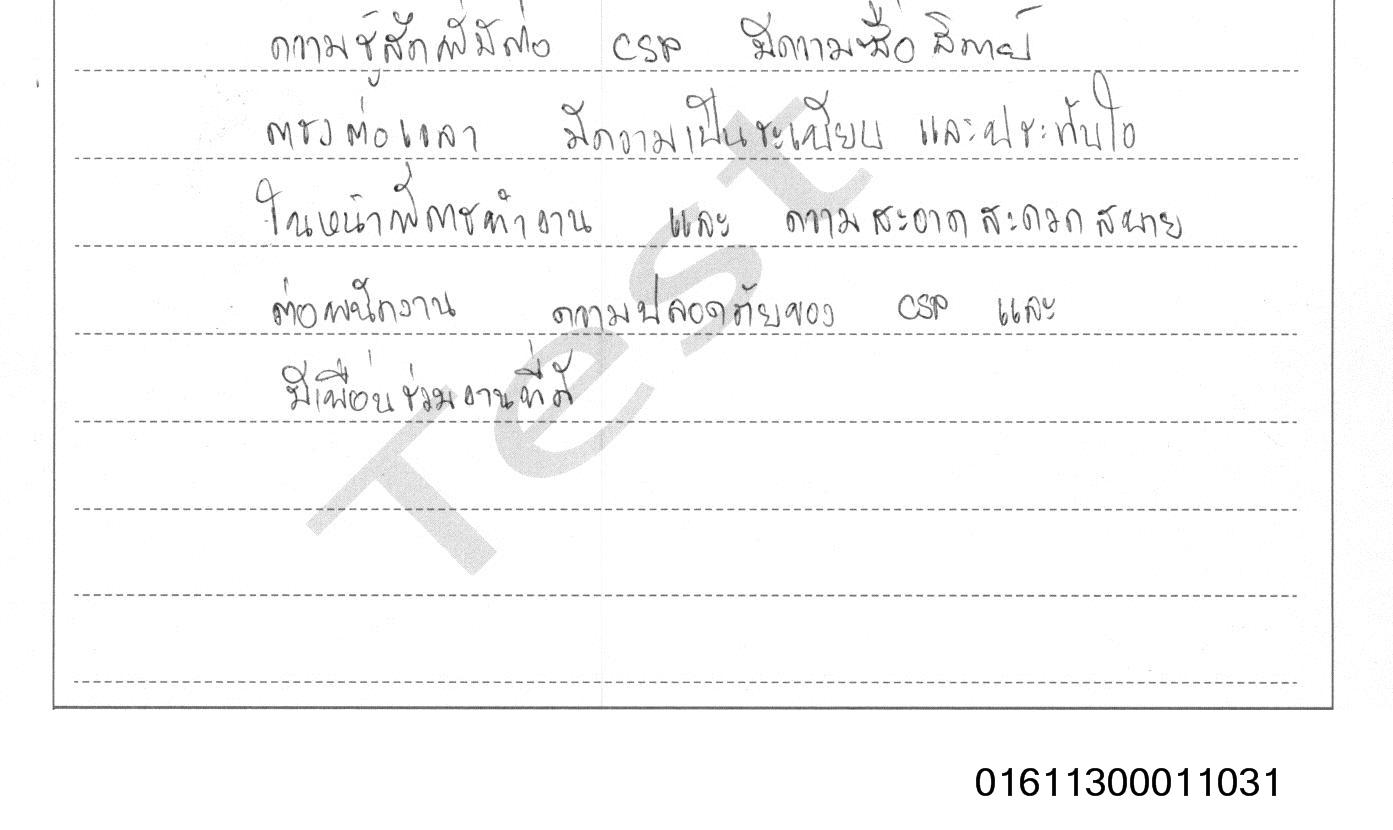 ความรู้สึกที่มีต่อ CSP มีความซื่อสัตย์
ตรงต่อเวลา มีความเป็นระเบียบ และประทับใจ
ในหน้าที่การทำงาน และ ความสะอาดสะดวกสบาย
ต่อพนักงาน ความปลอดภัยของ CSP และ
มีเพื่อนร่วมงานที่ดี
Test
01611300011031